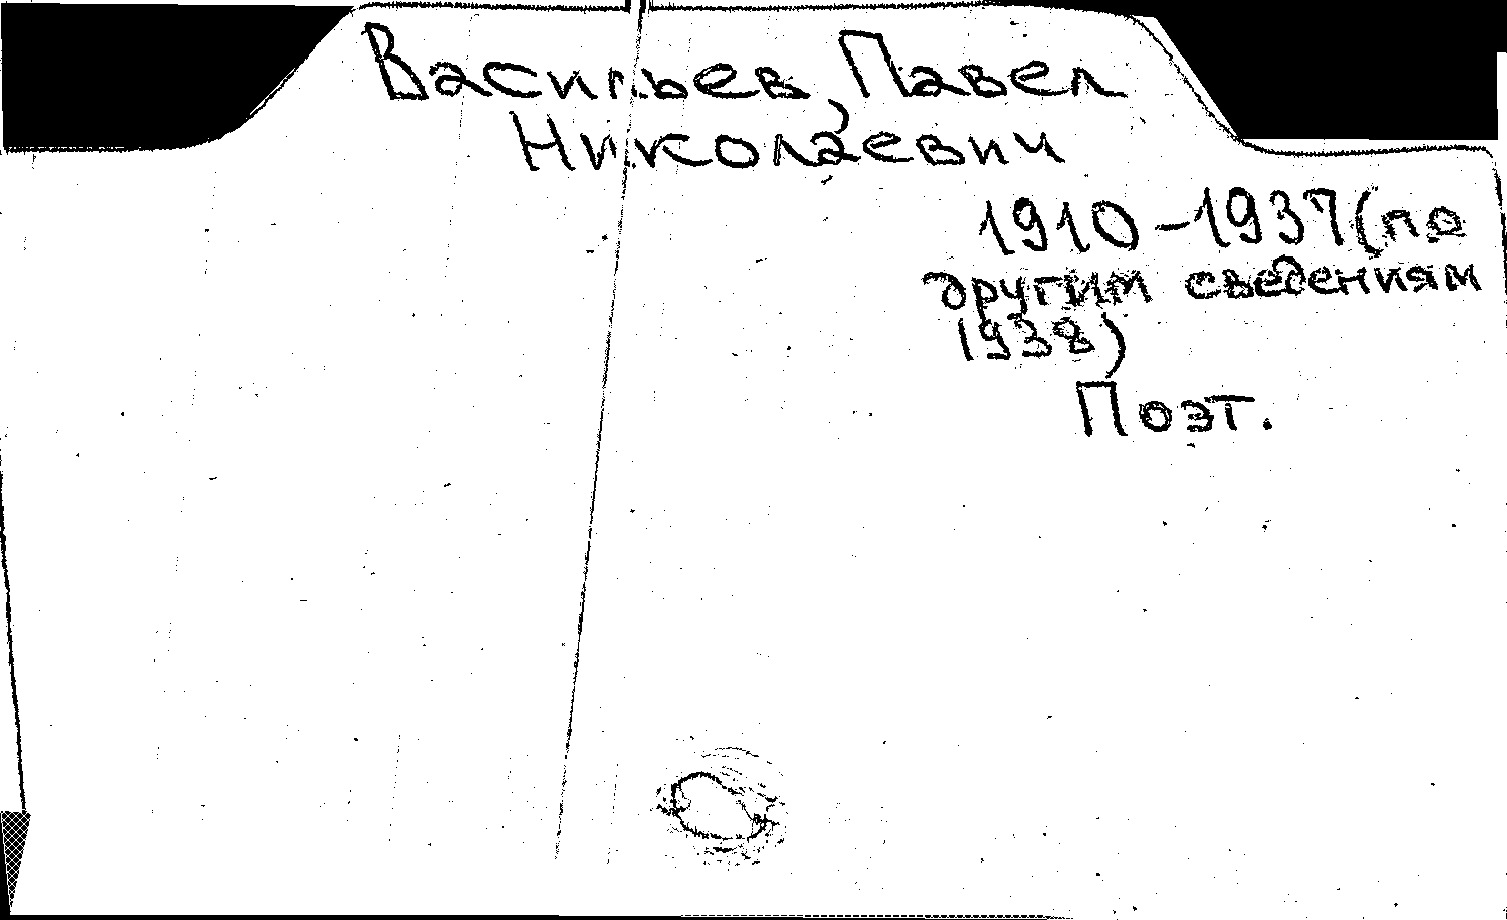 Васильев, Павел
Николаевич
1910-1937 (по
другим сведениям
1938)
Поэт.